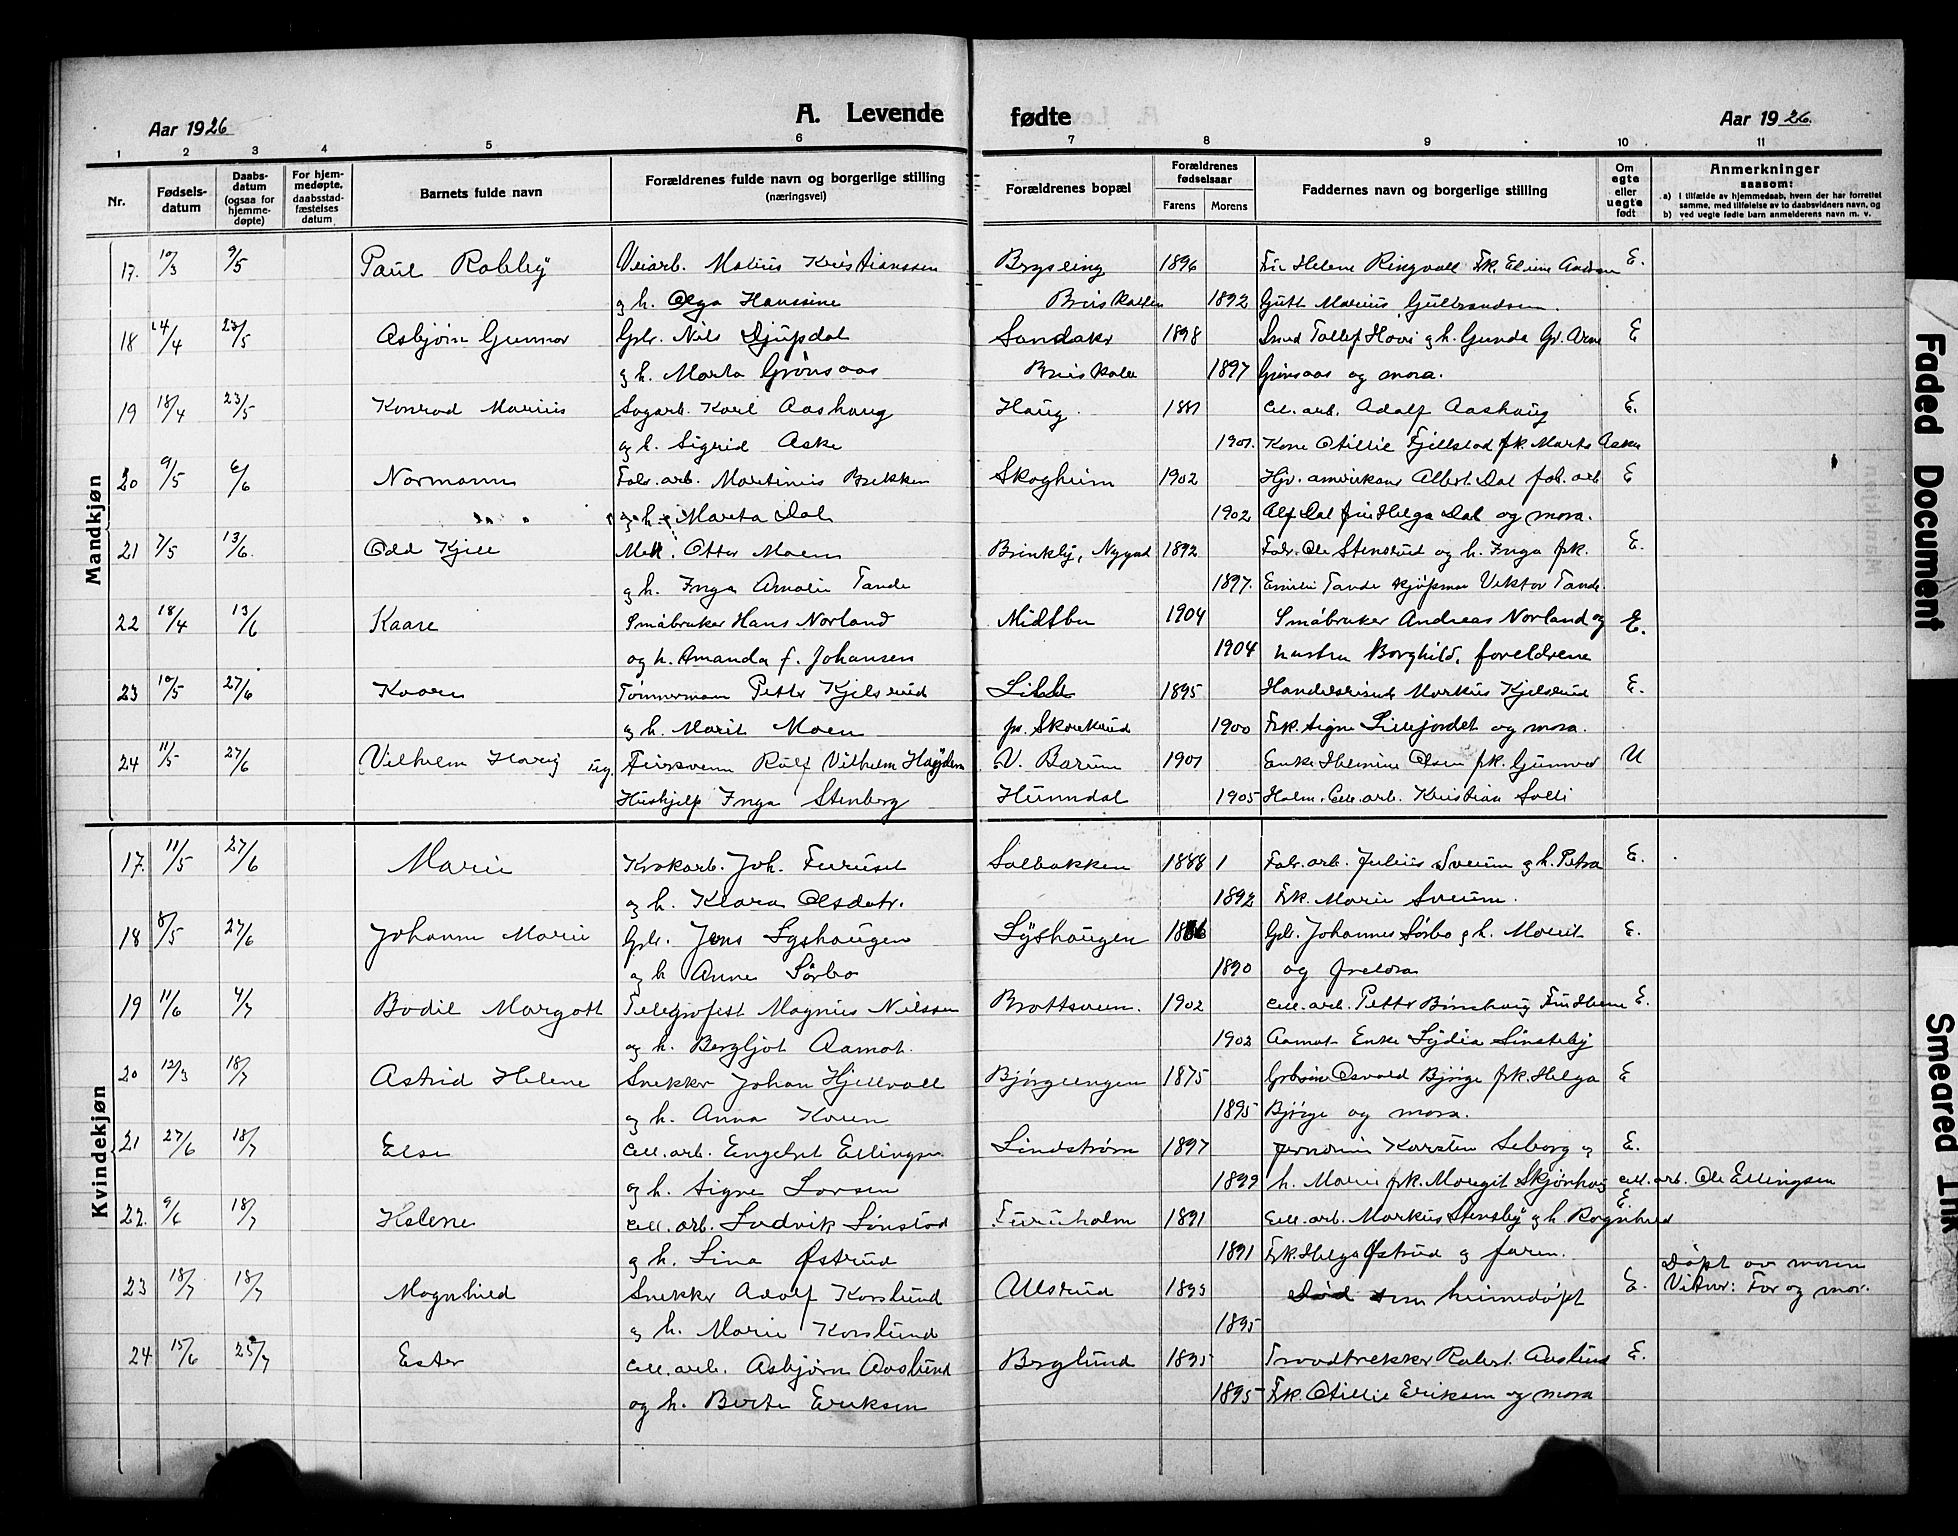 Aar 1926
A. Levende fødte
Aar 1926.
1 2 3 4 5 6 7 8 9 10 11
Nr.
Fødsels-
datum
Daabs-
datum
(ogsaa for
hjemme-
døpte)
For hjem-
medøpte,
daabsstad-
fæstelses
datum
Barnets fulde navn
Forældrenes fulde navn og borgerlige stilling
(næringsvei)
Forældrenes bopæl
Forældrenes
fødselsaar
Farens Morens
Faddernes navn og borgerlige stilling
Om
egte
eller
uegte
født
Anmerkninger
saasom:
a) I tilfælde av hjemmedaab, hvem der har forrettet
samme, med tilføielse av to daabsvidners navn, og
b) ved uegte fødte barn anmelderens navn m. v.
Mandkjøn
17. 10/3 9/5 Paul Robby Veiarb. Matius Kristianssen 1896 Fru Helene Ringvoll Frk. E.
og h. Olga Hanssine 1892 Marius Gulbrandsen.
18 14/4 23/5 Asbjørn Gunnar Gbr. Nils Djupdal Sandaker 1898 Smed Tollef Hovi og h. Gunda Gr. Arne E
og h. Marta Grønsaas 1897 Grønsaas og mora.
19 18/4 23/5 Konrad Marius Sagarb. Karl Aashaug Haug. Cell. arb. Adolf Aashaug E.
og h. Sigrid Aske 1901. Kone Otillie Fjellstad frk Marta Aske
20 9/5 6/6 Normann Fabr. arb. Martinius Brekken Skogheim 1902 Albert Dal fab. arb E
og h. Marta Dal 1902 Alf Dal fru Helga Dal og mora.
21 7/5 13/6. Odd Kjell Mek. Otto Moen Brinkby, Nygard 1892 Ole Stensrud og h. Inga frk. E.
og h. Inga Amalie Tande 1897. Emilie Tande kjøpman Viktor Tande
22 18/4 13/6 Kaare Småbruker Hans Norland Midtbu 1904 Småbruker Andreas Norland og E.
og h. Amanda f. Johansen 1904 hustru Borghild, foreldrene
23 10/5 27/6 Kaare Tømmerman Petter Kjelsrud 1895 Markus Kjelsrud E.
og h. Marit Moen 1900 Frk. Signe Lillejordet og mora.
24 11/5 27/6 Vilhelm Harry ug. Rulf Vilhelm V. Barum 1901 Enke Helmine Olsen frk. Gunvor U
Hushjelp Inga Stenberg Hunndal 1905 Holm. Cell. arb. Kristian Solli
Kvindekjøn
17. 11/5 27/6 Marie Joh. Furuset Solbakken 1888 1 Fabr. arb. Julius Sveum og h. Petra E.
og h. Klara Olsdatr. 1892 Frk. Marie Sveum.
18 8/5 27/6 Johanne Marie Gbr. Jens Lyshaugen Lyshaugen Gbr. Johannes Sørbo og h. Marit E.
og h Anne Sørbo 1890
19 11/6 4/7 Bodil Margott Telegrafist Magnus Nilssen Brattsveen. 1902 Cell. arb. Petter E.
og h. Bergljot Aamot. 1902 Aamot Enke Lydia Linsteby
20 12/3 18/7 Astrid Helene Snekker Johan Hjellvoll Bjørgeengen 1875 Osvald Bjørge frk. Helga E
og h. Anna Koren 1895 Bjørge og mora.
21 27/6 18/7 Else Cell. arb. Engebret Ellingsen Lindstrøm 1897 Karsten Seborg og E.
og h. Signe Larsen 1899 h. Marie frk. Margit Skjønhaug cell. arb. Ole Ellingsen
22. 9/6 18/7 Helene Cell. arb. Ludvik Lønstad Furuholm 1891 Cell. arb. Markus Stensby og h. Ragnhild E
og h. Lina Østrud 1891 Frk. Helga Østrud og faren.
23 18/7 18/7 Magnhild Snekker Adolf Korslund Ulsrud 1895 heimedøpt E. Døpt av moren
Vitner: Far og mor.
og h. Marie Korslund 1895
24 15/6 25/7 Ester Cell. arb. Asbjørn Aaslund Berglund 1895 Traadtrekker Robert Aaslund E.
og h. Berte Eriksen 1895 Frk. Otillie Eriksen og mora
Faded Document
Smeared Ink